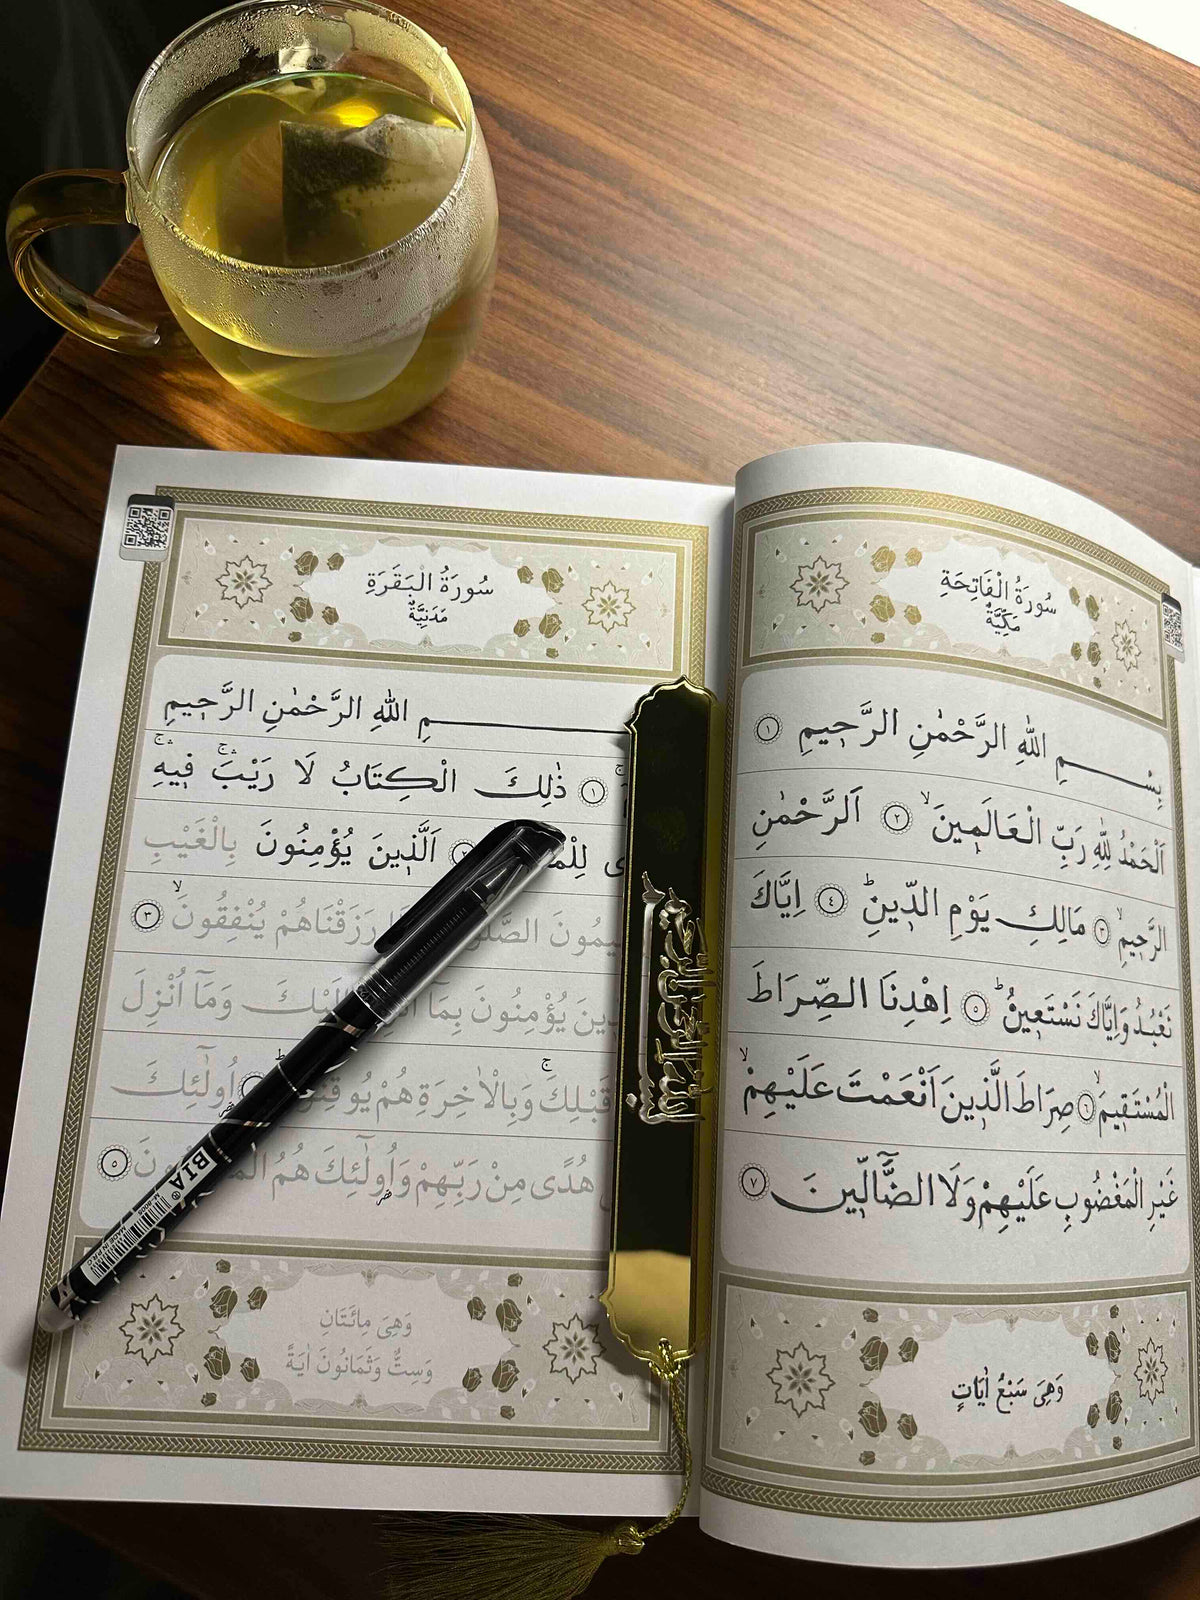 سُورَةُ الْفَاتِحَةِ
مَكِّيَّةٌ
بِسْمِ اللهِ الرَّحْمٰنِ الرَّحِيمِ ١
اَلْحَمْدُ لِلّٰهِ رَبِّ الْعَالَمِينَ ٢ اَلرَّحْمٰنِ
الرَّحِيمِ ٣ مَالِكِ يَوْمِ الدِّينِ ٤ اِيَّاكَ
نَعْبُدُ وَاِيَّاكَ نَسْتَعِينُ ٥ اِهْدِنَا الصِّرَاطَ
الْمُسْتَقِيمَ ٦ صِرَاطَ الَّذِينَ اَنْعَمْتَ عَلَيْهِمْ
غَيْرِ الْمَغْضُوبِ عَلَيْهِمْ وَلَا الضَّالِّينَ ٧
وَهِيَ سَبْعُ اٰيَاتٍ
سُورَةُ الْبَقَرَةِ
مَدَنِيَّةٌ
مِ اللهِ الرَّحْمٰنِ الرَّحِيمِ
١ ذٰلِكَ الْكِتَابُ لَا رَيْبَ فِيهِ
اَلَّذِينَ يُؤْمِنُونَ بِالْغَيْبِ
رَزَقْنَاهُمْ يُنْفِقُونَ ٣
يُؤْمِنُونَ بِمَا اِلَيْكَ وَمَا اُنْزِلَ
قَبْلِكَ وَبِالْاٰخِرَةِ هُمْ يُوقِنُونَ اُولٰئِكَ
هُدًى مِنْ رَبِّهِمْ وَاُولٰئِكَ هُمُ ٥
وَهِيَ مِائَتَانِ
وَسِتٌّ وَثَمَانُونَ اٰيَةً
BIA